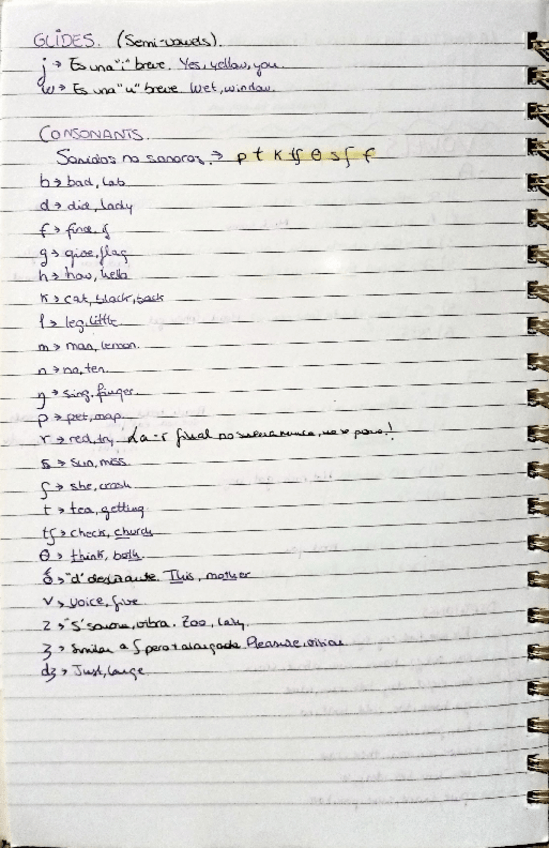 GLIDES. (Semi-vowels).
j → Es una "i" breve. Yes, yellow, you.
w → Es una "u" breve. Wet, window.
CONSONANTS.
Sonidos no sonoros → p t k tʃ θ s ʃ f
b → bad, lab
d → die, lady
f → fine, if
g → give, flag
h → how, hello
k → cat, black, back
l → leg, little
m → man, lemon.
n → no, ten.
ŋ → sing, finger.
p → pet, map.
r → red, try. La -r final no suena nunca, no se pone!
s → sun, miss.
ʃ → she, crash
t → tea, getting
tʃ → check, church
θ → think, both.
ð → "d" This, mother
v → voice, five
z → "s" sonora, vibra. Zoo, lazy.
ʒ → Similar a ʃ pero + alargada. Pleasure, vision
dʒ → Just, large